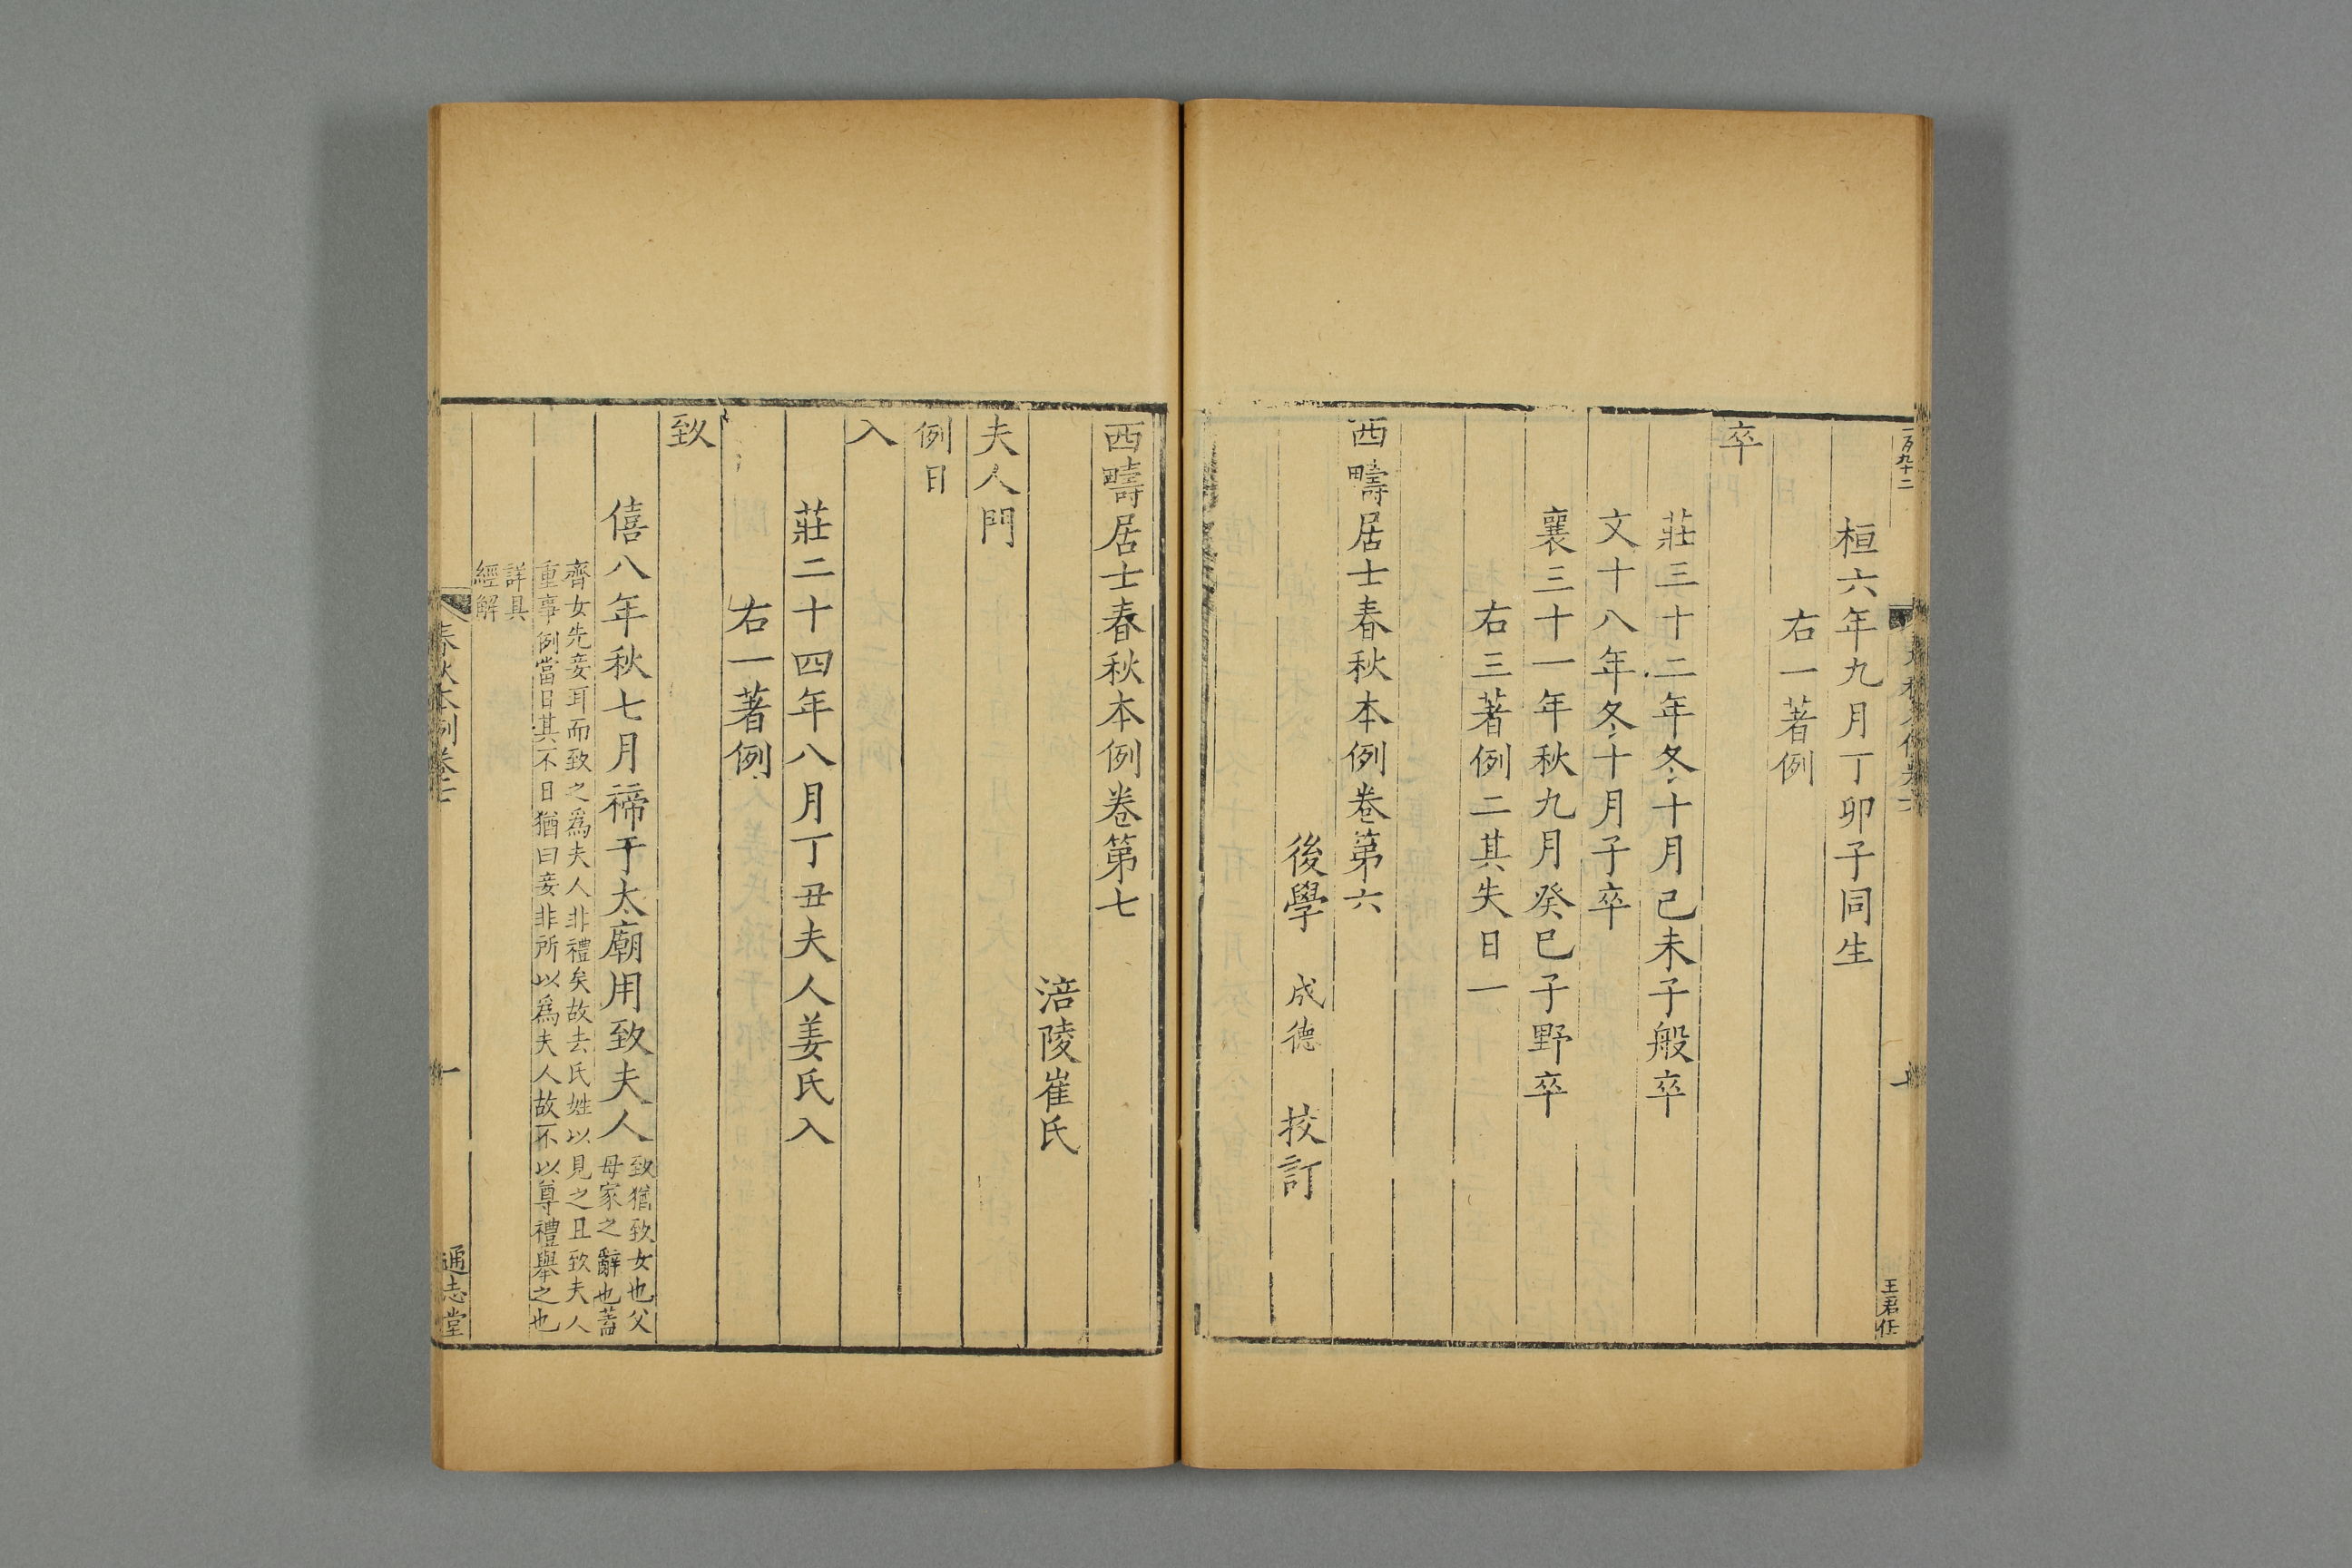 桓六年九月丁卯子同生
右一著例
卒
莊三十二年冬十月己未子般卒
文十八年冬十月子卒
襄三十一年秋九月癸巳子野卒
右三著例二其失日一
西疇居士春秋本例卷第六
後學 成德 挍訂
王君任
西疇居士春秋本例卷第七
涪陵崔氏
夫人門
例日
入
莊二十四年八月丁丑夫人姜氏入
右一著例
致
僖八年秋七月禘于太廟用致夫人
致猶致女也父
母家之辭也蓋
齊女先妾耳而致之爲夫人非禮矣故去氏姓以見之且致夫人
重事例當日其不日猶曰妾非所以爲夫人故不以尊禮舉之也
詳具
經解
春秋本例卷七
一
通志堂